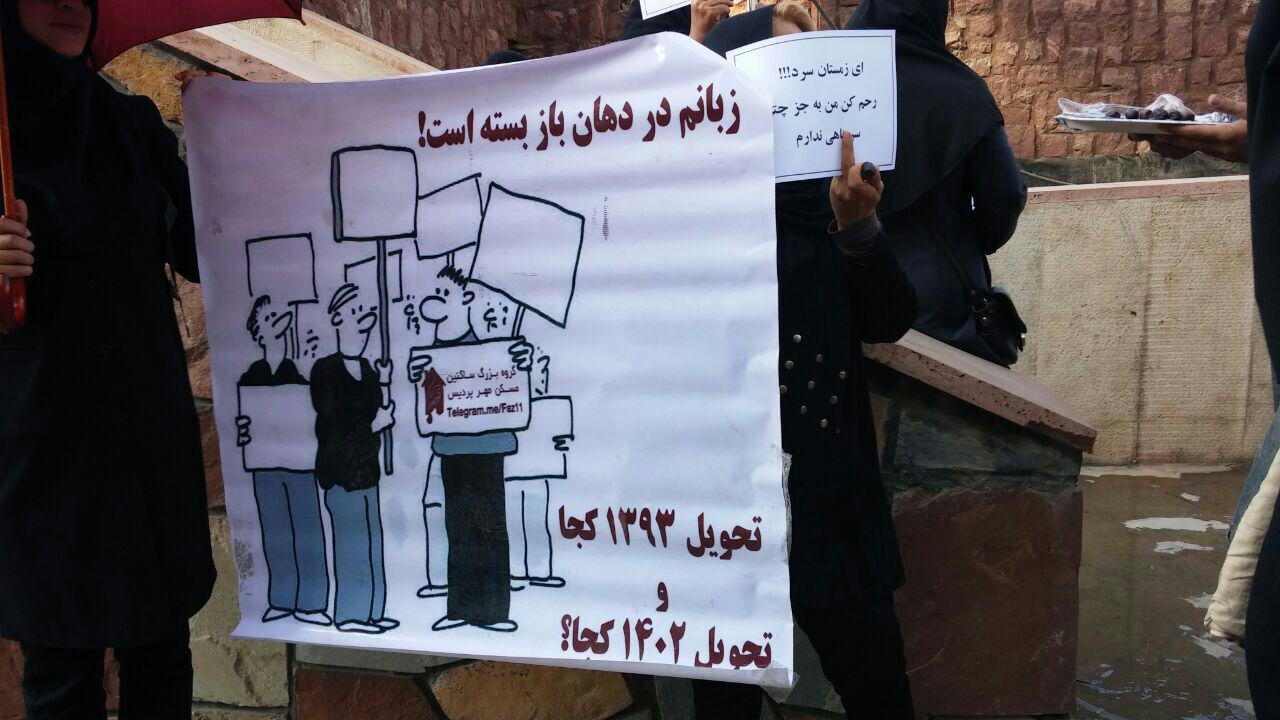 زبانم در دهان باز بسته است!
گروه بزرگ ساکنین
مسکن مهر پردیس
Telegram.me/Faz11
تحویل ۱۳۹۳ کجا
و
تحویل ۱۴۰۲ کجا؟
ای زمستان سرد!!!
رحم کن من به جز
ندارم